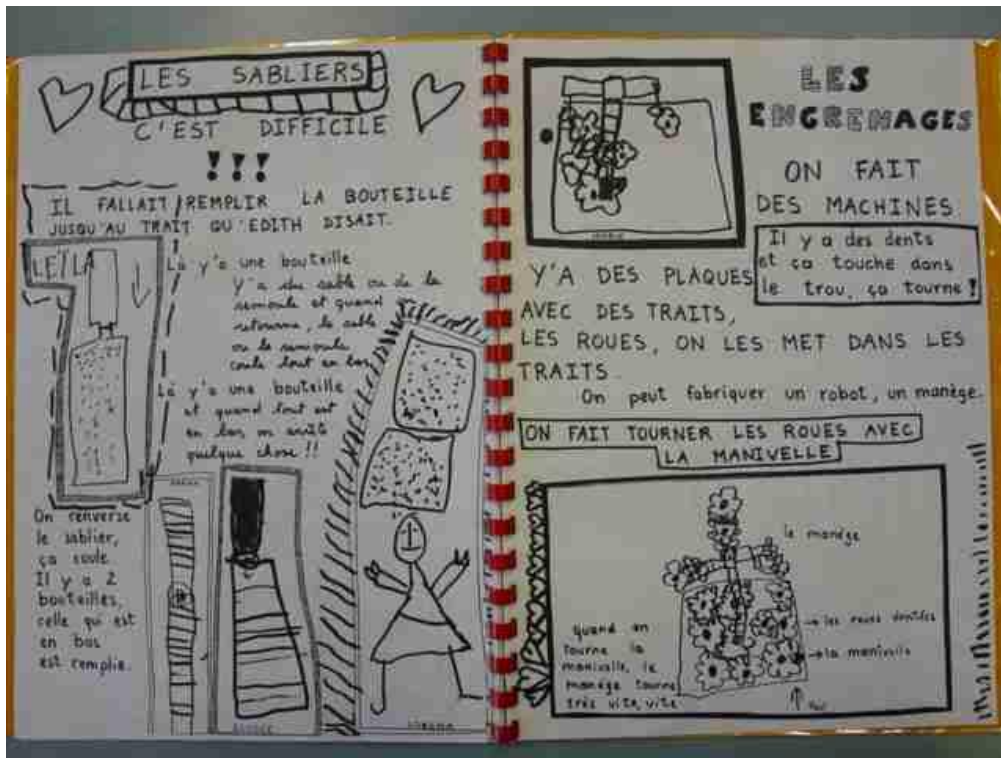 LES SABLIERS
C'EST DIFFICILE
!!!
IL FALLAIT REMPLIR LA BOUTEILLE
JUSQU'AU TRAIT QU'EDITH DISAIT.
LEÏLA
Là y'a une bouteille
Y'a du sable ou de la
semoule et quand
retourne, le sable
ou la semoule
coule tout en bas
Là y'a une bouteille
et quand tout est
en bas on arrête
quelque chose !!
On renverse
le sablier,
ça coule
Il y a 2
bouteilles,
celle qui est
en bas
est remplie.
LES
ENGRENAGES
ON FAIT
DES MACHINES
Il y a des dents
et ça touche dans
le trou, ça tourne !
Y'A DES PLAQUES
AVEC DES TRAITS,
LES ROUES, ON LES MET DANS LES
TRAITS
On peut fabriquer un robot, un manège.
ON FAIT TOURNER LES ROUES AVEC
LA MANIVELLE
le manège
→ les roues dentées
→ la manivelle
quand on
tourne la
manivelle, le
manège tourne
très vite, vite